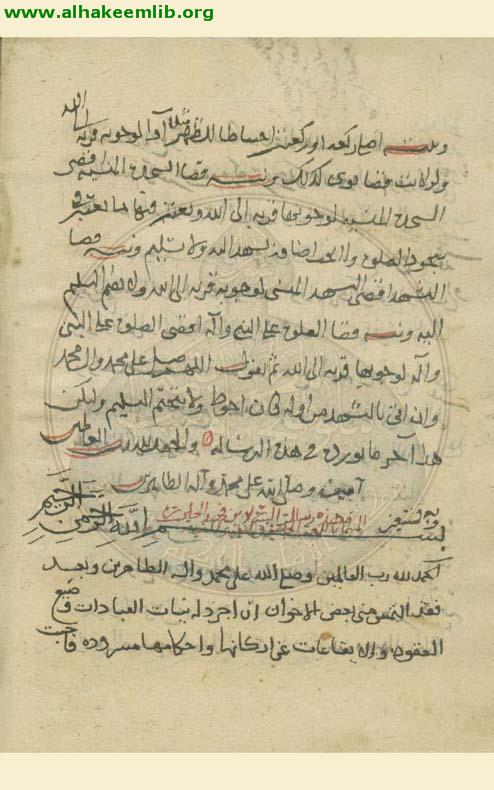 www.alhakeemlib.org
الله
ونيته اصلى ركعة او ركعتين احتياطا للظهر مثلا اداء لوجوبه قربة
ولو كانت قضا نوى كذلك ونية قضا السجدة المنسية اقضى
السجدة المنسية لوجوبها قربة الى الله ويعتبر فيها ما يعتبر في
سجود الصلوة
ولا تسليم ونية قضا
التشهد اقضى التشهد المنسى لوجوبه قربة الى الله ولا يضم التسليم
اليه ونية قضا الصلوة على النبي وآله اقضى الصلوة على النبي
وآله لوجوبها قربة الى الله ثم يقول اللهم صل على محمد وال محمد
وان اتى بالتشهد من اوله كان احوط ولا يختم بالتسليم وليكن
هذا آخر ما نورده في هذه الرسالة والحمد لله رب العالمين
آمين وصلى الله على محمد وآله الطاهرين
وبه نستعين
بسم الله الرحمن الرحيم
الحمد لله رب العالمين وصلى الله على محمد واله الطاهرين وبعد
فقد التمس منى بعض الاخوان ان اجرد له نيات العبادات وصيغ
العقود والايقاعات عن اركانها واحكامها مسرودة فاجبت